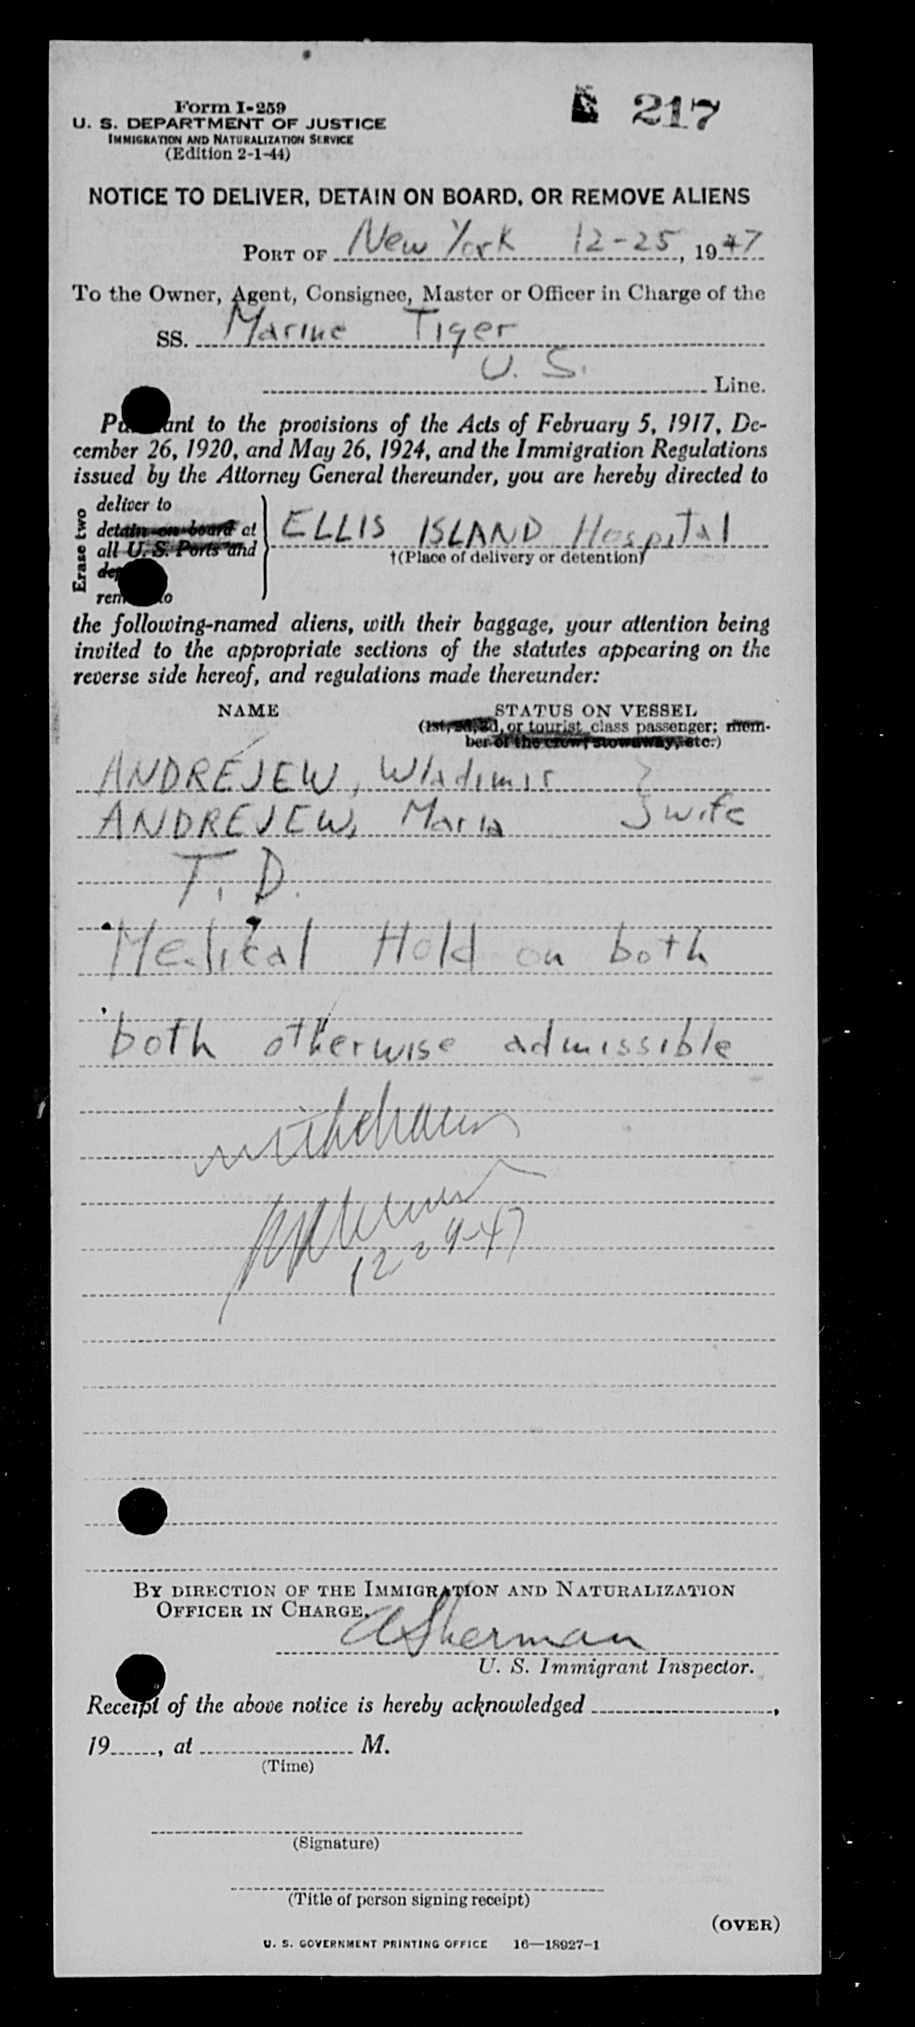 Form I-259
217
U. S. DEPARTMENT OF JUSTICE
IMMIGRATION AND NATURALIZATION SERVICE
(Edition 2-1-44)
NOTICE TO DELIVER, DETAIN ON BOARD, OR REMOVE ALIENS
PORT OF New York 12-25, 1947
To the Owner, Agent, Consignee, Master or Officer in Charge of the
SS. Marine Tiger
U. S. Line.
Pursuant to the provisions of the Acts of February 5, 1917, De-
cember 26, 1920, and May 26, 1924, and the Immigration Regulations
issued by the Attorney General thereunder, you are hereby directed to
Erase two
deliver to
detain on board at
all U. S. Ports and
remove to
ELLIS ISLAND Hospital
†(Place of delivery or detention)
the following-named aliens, with their baggage, your attention being
invited to the appropriate sections of the statutes appearing on the
reverse side hereof, and regulations made thereunder:
NAME STATUS ON VESSEL
(1st, 2d, 3d, or tourist class passenger; mem-
ber of the crew, stowaway, etc.)
ANDREJEW, Wladimir }
ANDREJEW, Maria } wife
T. D.
Medical Hold on both
both otherwise admissible
withdrawn
12-29-47
BY DIRECTION OF THE IMMIGRATION AND NATURALIZATION
OFFICER IN CHARGE.
A Sherman
U. S. Immigrant Inspector.
Receipt of the above notice is hereby acknowledged ,
19 , at M.
(Time)
(Signature)
(Title of person signing receipt)
(OVER)
U. S. GOVERNMENT PRINTING OFFICE 16—18927-1